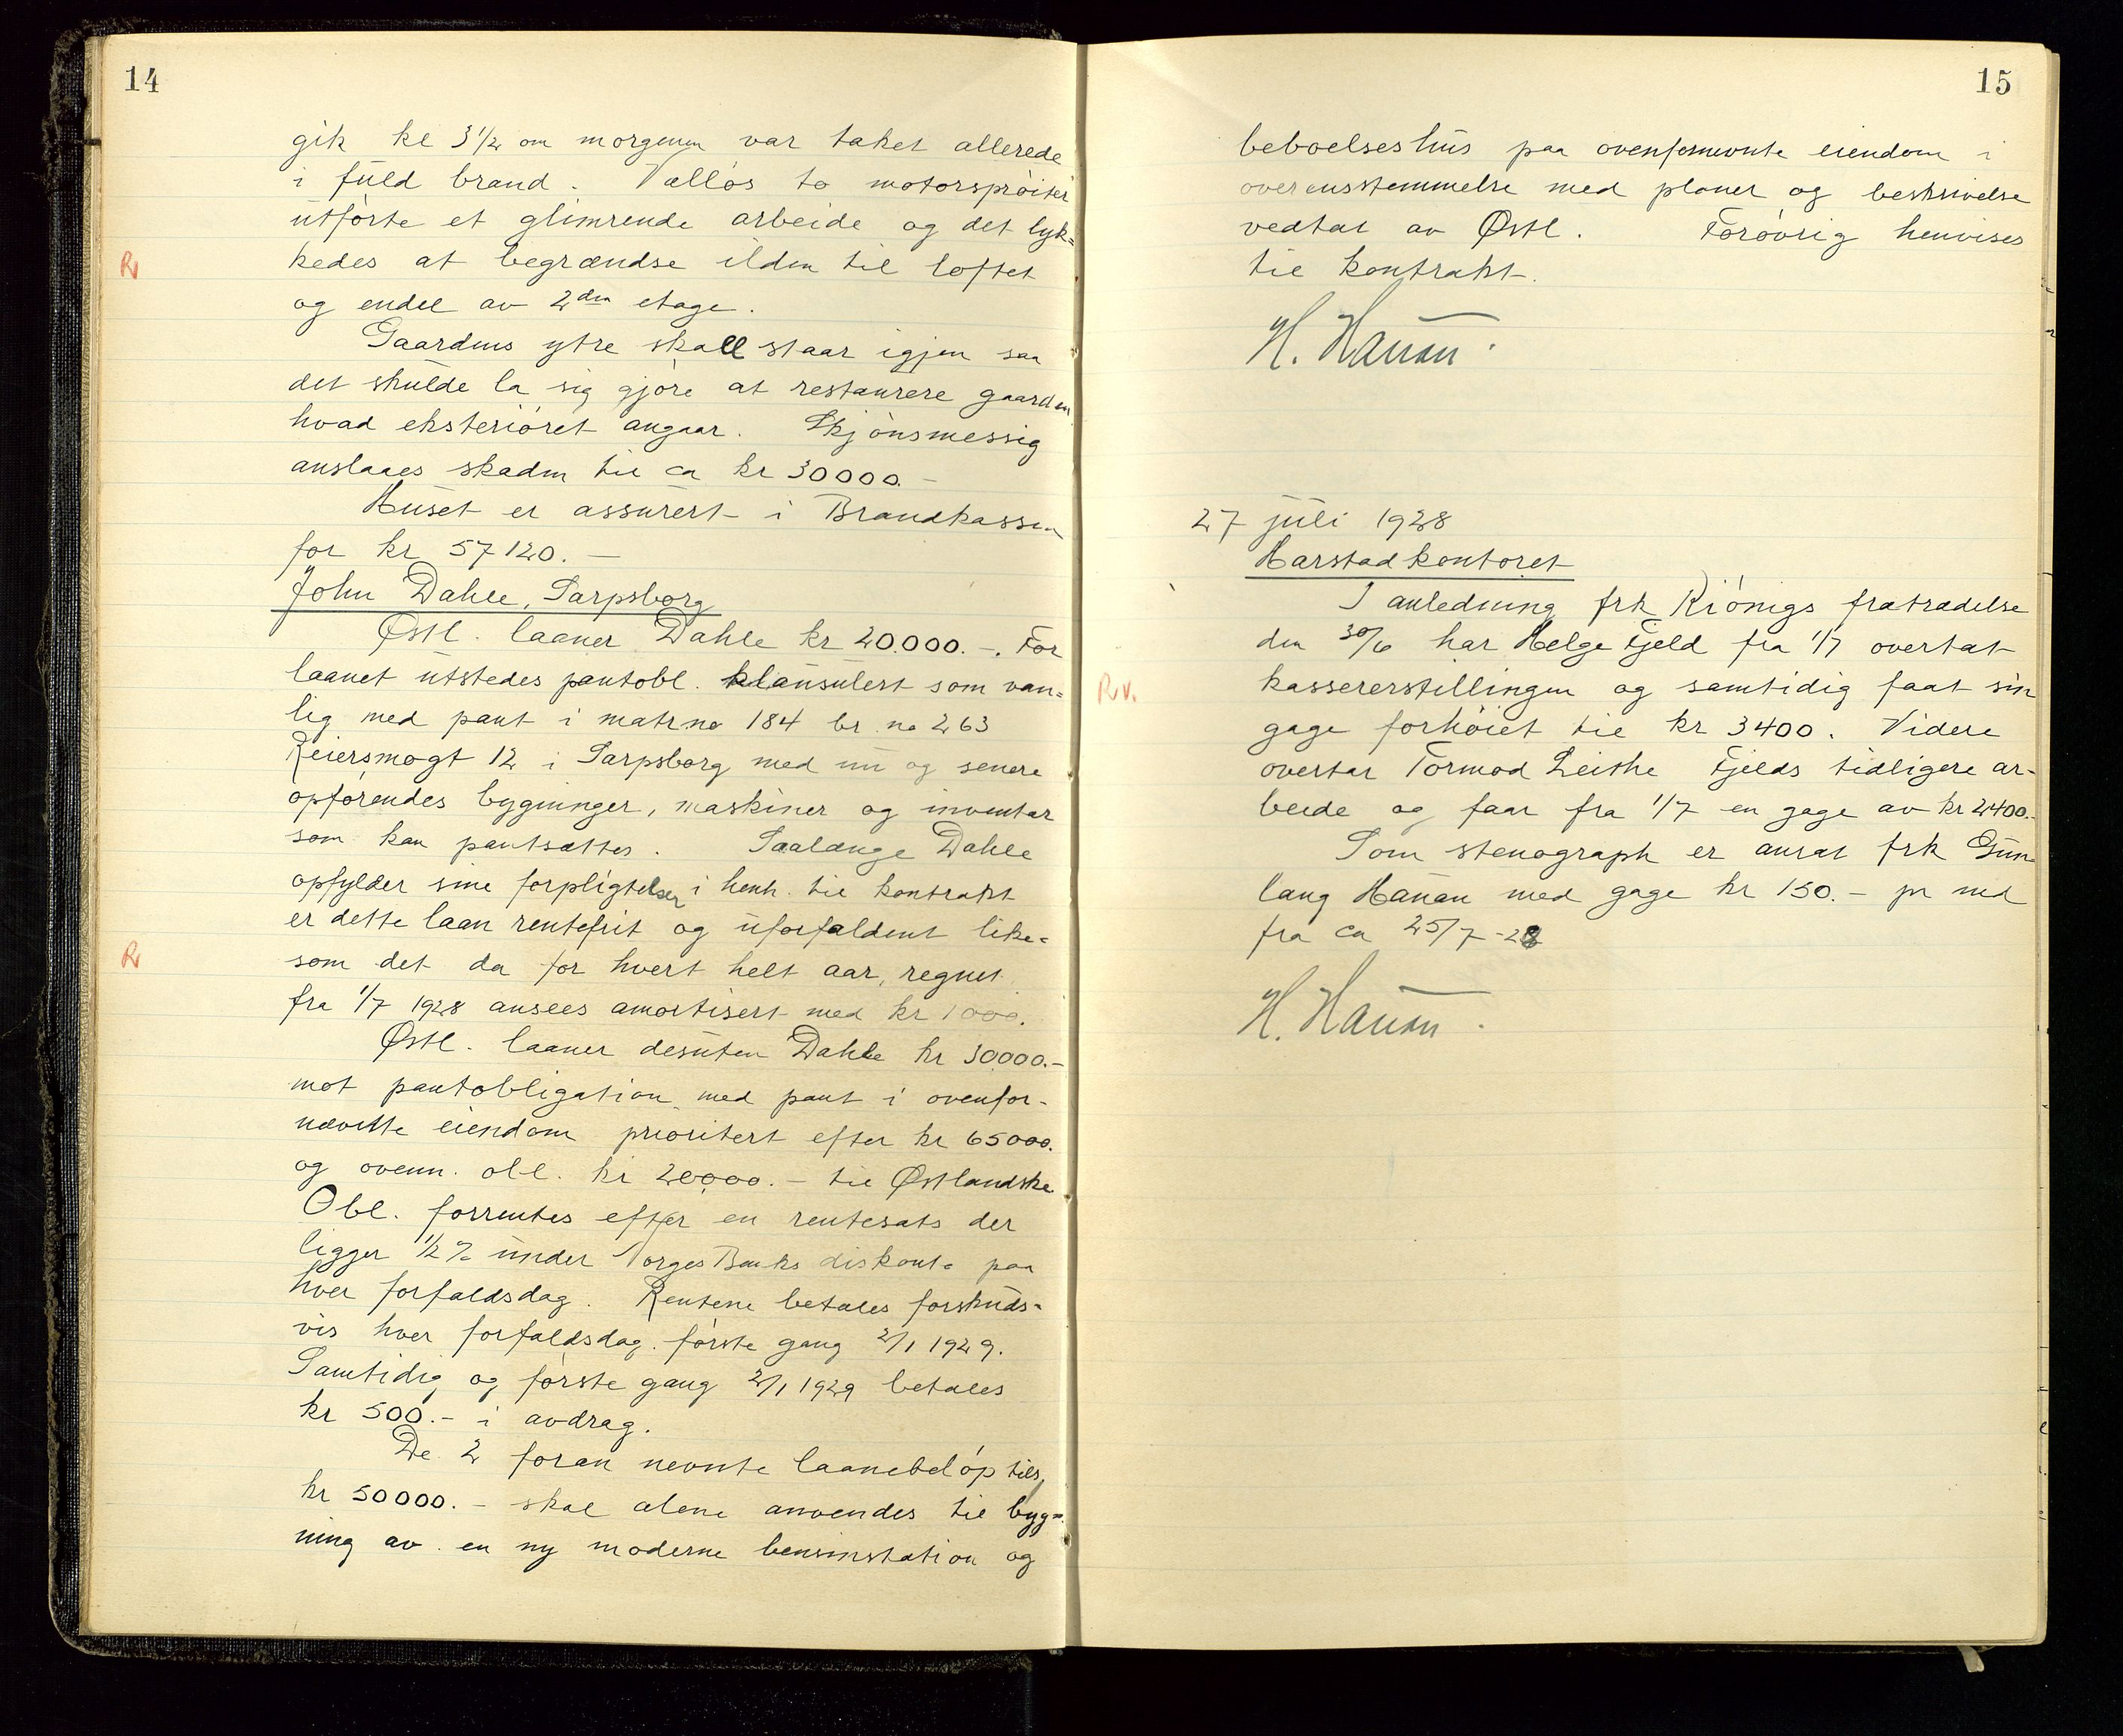 14
gik kl 3 1/2 om morgenen var taket allerede
i fuld brand. Valløs to motorsprøiter
utførte et glimrende arbeide og det lyk=
R
kedes at begrændse ilden til loftet
og endel av 2den etage.
Gaardens ytre skall staar igjen saa
det skulde la sig gjøre at restaurere gaarden
hvad eksteriøret angaar. Skjønsmessig
anslaaes skaden til ca kr 30000.-
Huset er assurert i Brandkassen
for kr 57120.-
John Dahle, Sarpsborg
Østl. laaner Dahle kr 20.000.-. For
laanet utstedes pantobl. klausulert som van=
lig med pant i matrno 184 br. no 263
Reiersmogt 12 i Sarpsborg med nu og senere
opførendes bygninger, maskiner og inventar
som kan pantsættes. Saalænge Dahle
opfylder sine forpligtelser i henh. til kontrakt
er dette laan rentefrit og uforfaldent like=
R
som det da for hvert helt aar, regnet
fra 1/7 1928 ansees amortisert med kr 1000.
Østl. laaner desuten Dahle kr 30000.-
mot pantobligation med pant i ovenfor-
nævnte eiendom prioritert efter kr 65000.
og ovenn. obl. kr 20000.- til Østlandske
Obl. forrentes efter en rentesats der
ligger 1/2 % under Norges Banks diskonto paa
hver forfaldsdag. Rentene betales forskuds-
vis hver forfaldsdag. første gang 2/1 1929.
Samtidig og første gang 2/1 1929 betales
kr 500.- i avdrag.
De 2 foran nevnte laanebeløp tils.
kr 50000.- skal alene anvendes til byg=
ning av en ny moderne bensinstation og
15
beboelseshus paa ovenfornevnte eiendom i
overensstemmelse med planer og beskrivelse
vedtat av Østl. Forøvrig henvises
til kontrakt.
H. Hauan.
27 juli 1928
Harstadkontoret
I anledning frk Kiønigs fratrædelse
den 30/6 har Helge Fjeld fra 1/7 overtat
R.v.
kassererstillingen og samtidig faat sin
gage forhøiet til kr 3400. Videre
overtar Tormod Leithe Fjelds tidligere ar-
beide og faar fra 1/7 en gage av kr 2400.-
Som stenograph er ansat frk Gun-
laug Hauan med gage kr 150.- pr md
fra ca 25/7-28
H. Hauan.